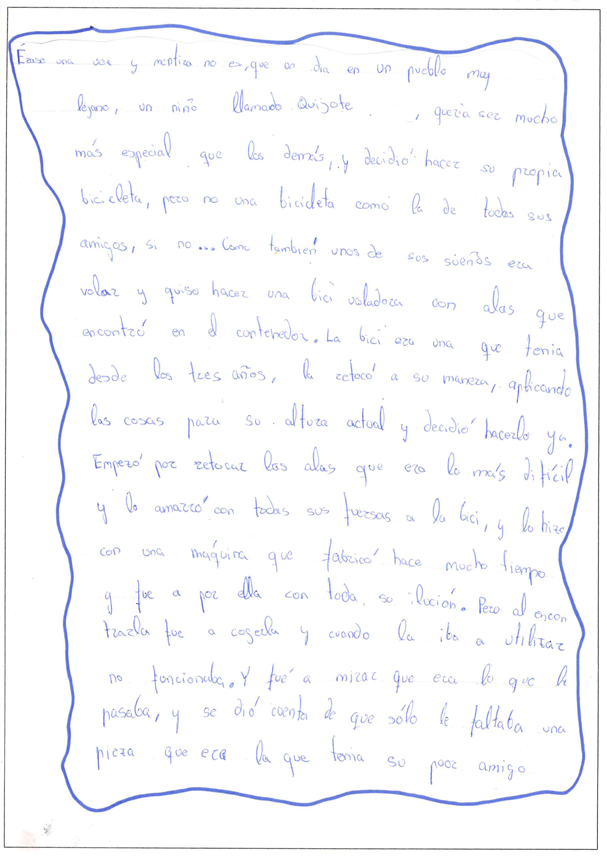 Érase una vez y mentira no es, que un dia en un pueblo muy
lejano, un niño llamado Quijote , queria ser mucho
más especial que los demás, y decidió hacer su propia
bicicleta, pero no una bicicleta como la de todos sus
amigos, si no... Como también unos de sus sueños era
volar y quiso hacer una bici voladora con alas que
encontró en el contenedor. La bici era una que tenia
desde los tres años, la retocó a su manera, aplicando
las cosas para su altura actual y decidió hacerlo ya.
Empezó por retocar las alas que era lo más difícil
y lo amarró con todas sus fuersas a la bici, y lo hizo
con una máquina que fabricó hace mucho tiempo
y fue a por ella con toda su ilución. Pero al encon
trarla fue a cogerla y cuando la iba a utilizar
no funcionaba. Y fué a mirar que era lo que le
pasaba, y se dió cuenta de que sólo le faltaba una
pieza que era la que tenia su peor amigo